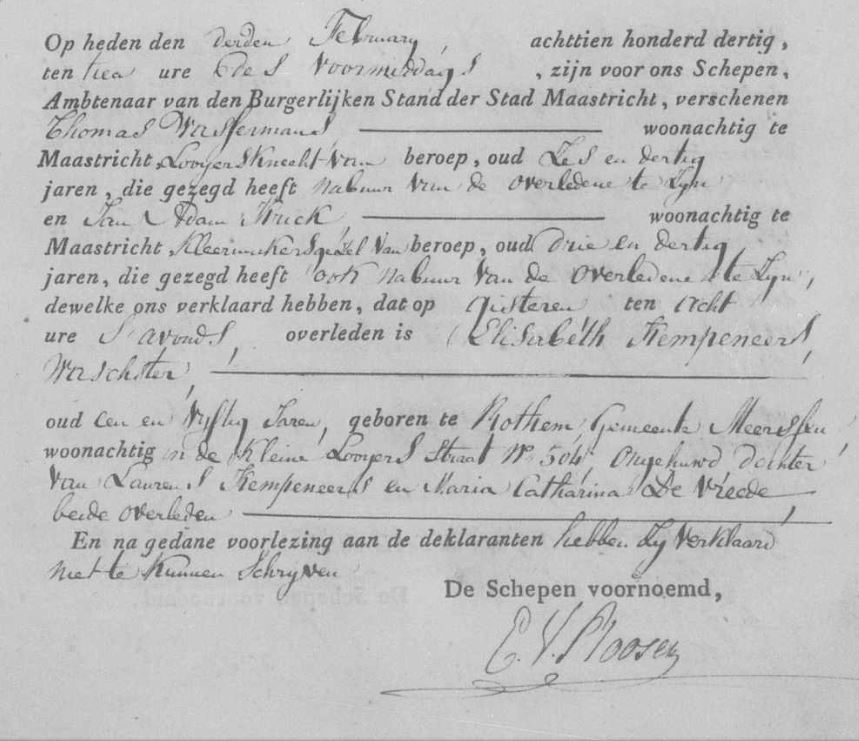 Op heden den derden February, achttien honderd dertig,
ten tien ure des voormiddags, zijn voor ons Schepen,
Ambtenaar van den Burgerlijken Stand der Stad Maastricht, verschenen
Thomas Wassermans woonachtig te
Maastricht, Looyersknecht van beroep, oud zes en dertig
jaren, die gezegd heeft nabuur van de overledene te zyn
en Jan Adam Kuck woonachtig te
Maastricht, Kleermakersgezel van beroep, oud drie en dertig
jaren, die gezegd heeft ook nabuur van de overledene te zyn,
dewelke ons verklaard hebben, dat op gisteren ten acht
ure S'avonds, overleden is Elisabeth Kempeneers,
Waschster,
oud een en vyftig Jaren, geboren te Rothem, Gemeente Meerssen,
woonachtig in de Kleine Looyers Straat N° 504, ongehuwd dochter
van Laurens Kempeneers en Maria Catharina De Vreede
beide overleden,
En na gedane voorlezing aan de deklaranten hebben zy verklaard
niet te kunnen schryven
De Schepen voornoemd,